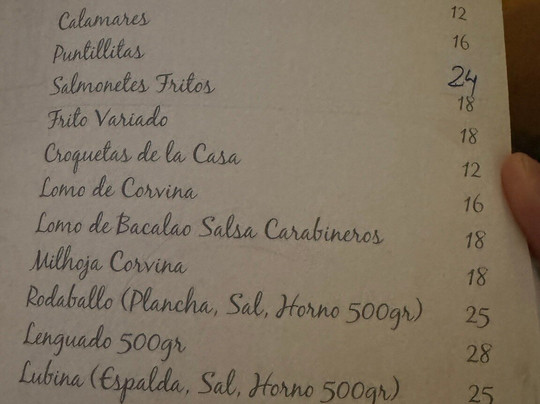 Calamares 12
Puntillitas 16
Salmonetes Fritos 24 18
Frito Variado 18
Croquetas de la Casa 12
Lomo de Corvina 16
Lomo de Bacalao Salsa Carabineros 18
Milhoja Corvina 18
Rodaballo (Plancha, Sal, Horno 500gr) 25
Lenguado 500gr 28
Lubina (Espalda, Sal, Horno 500gr) 25